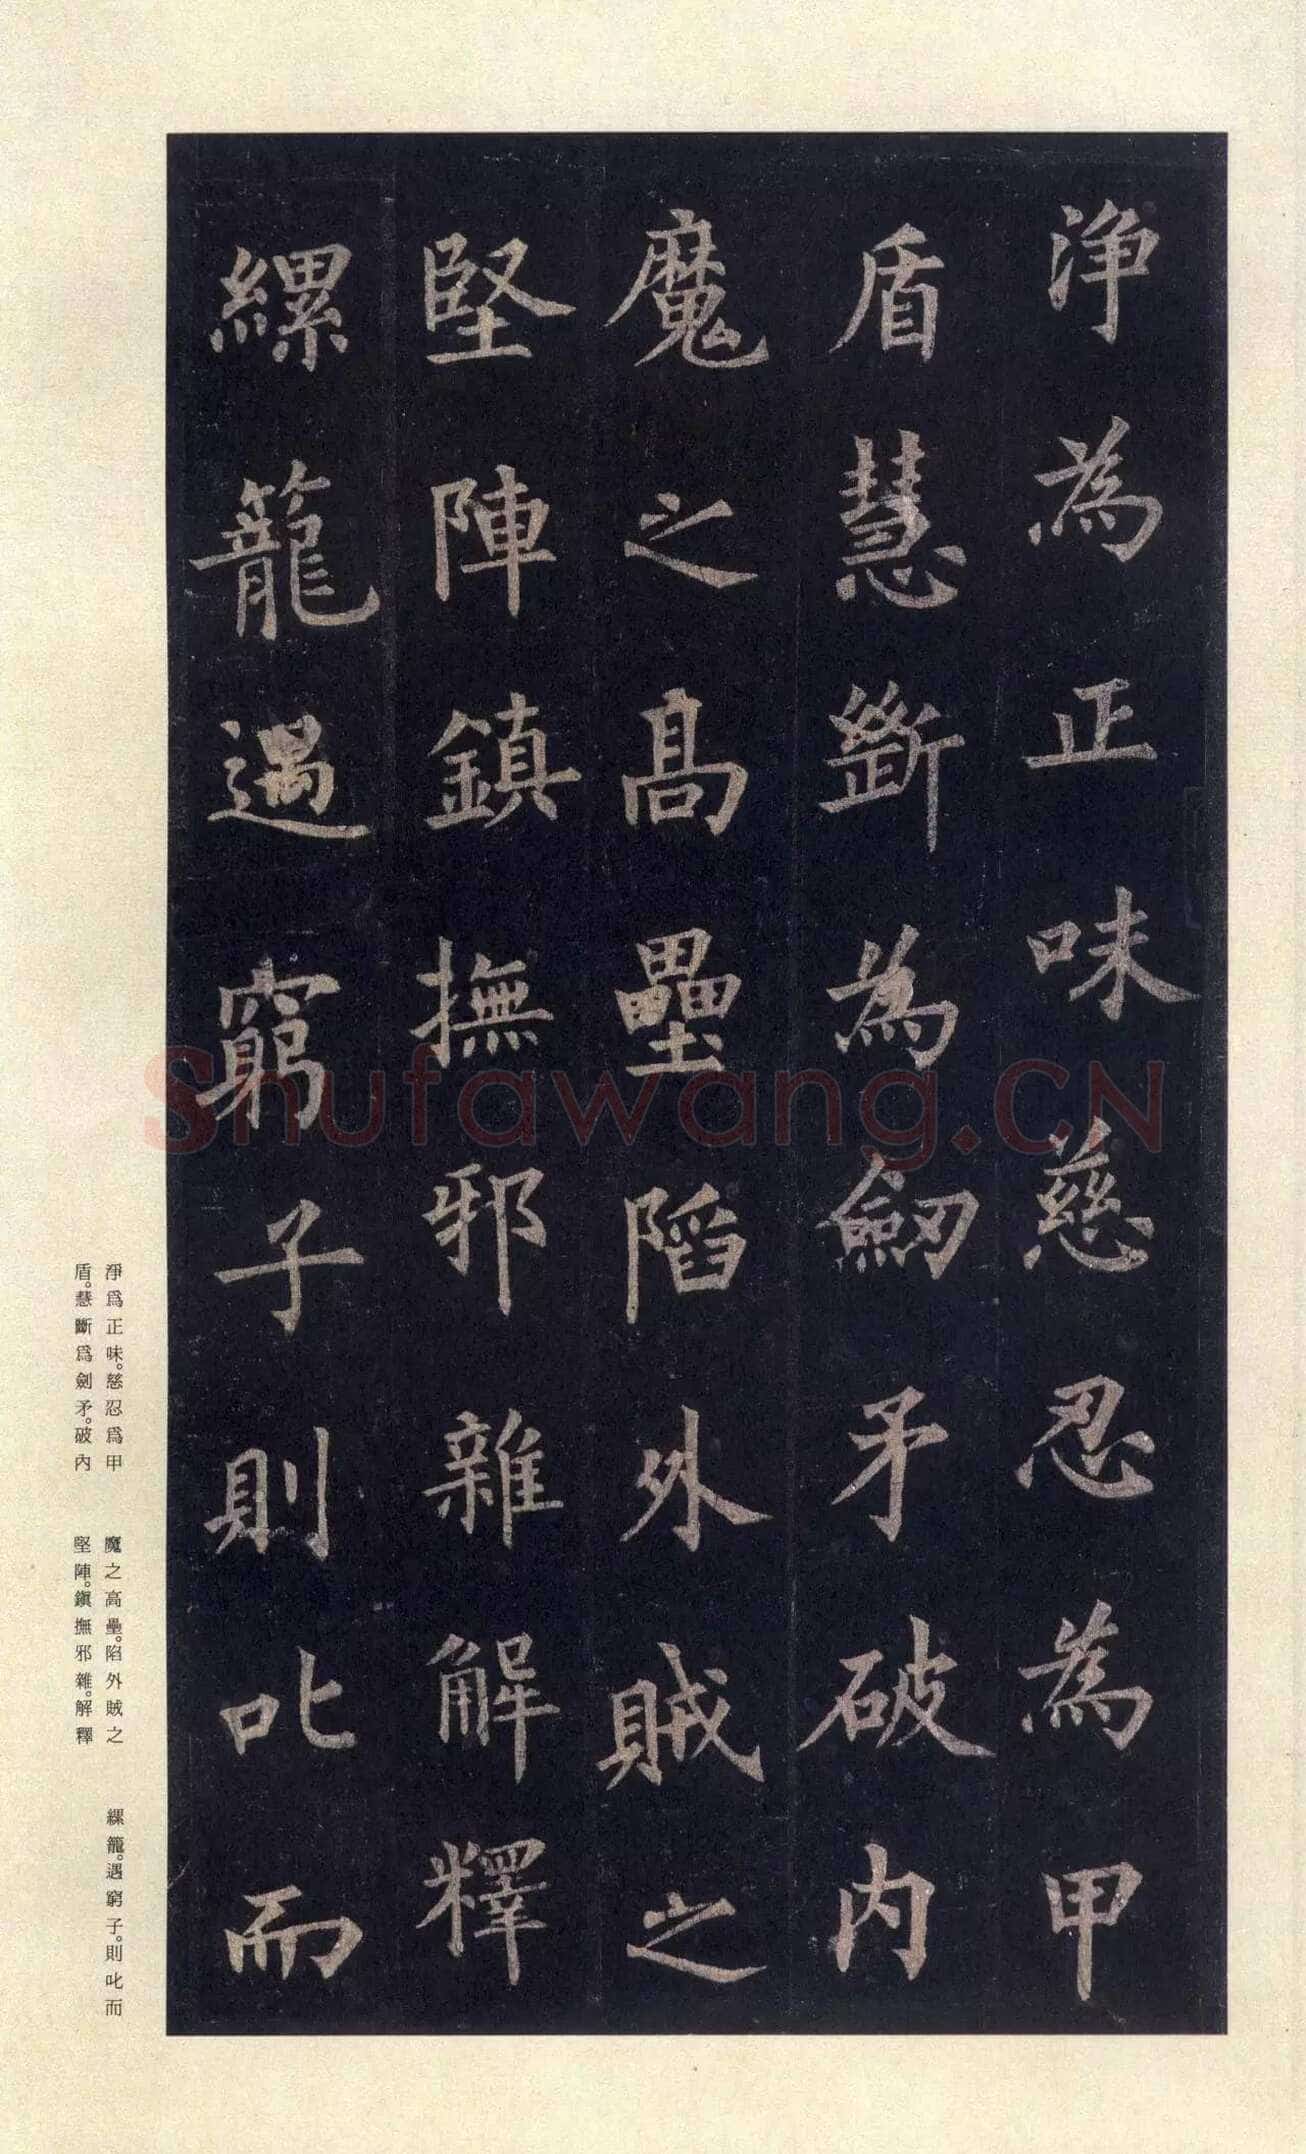 淨為正味慈忍為甲
盾慧斷為劒矛破内
魔之高壘陷外賊之
堅陣鎮撫邪雜解釋
縲籠遇窮子則叱而
淨爲正味。慈忍爲甲
盾。慧斷爲劍矛。破內
魔之高壘。陷外賊之
堅陣。鎭撫邪雜。解釋
縲籠。遇窮子。則叱而
Shufawang.CN